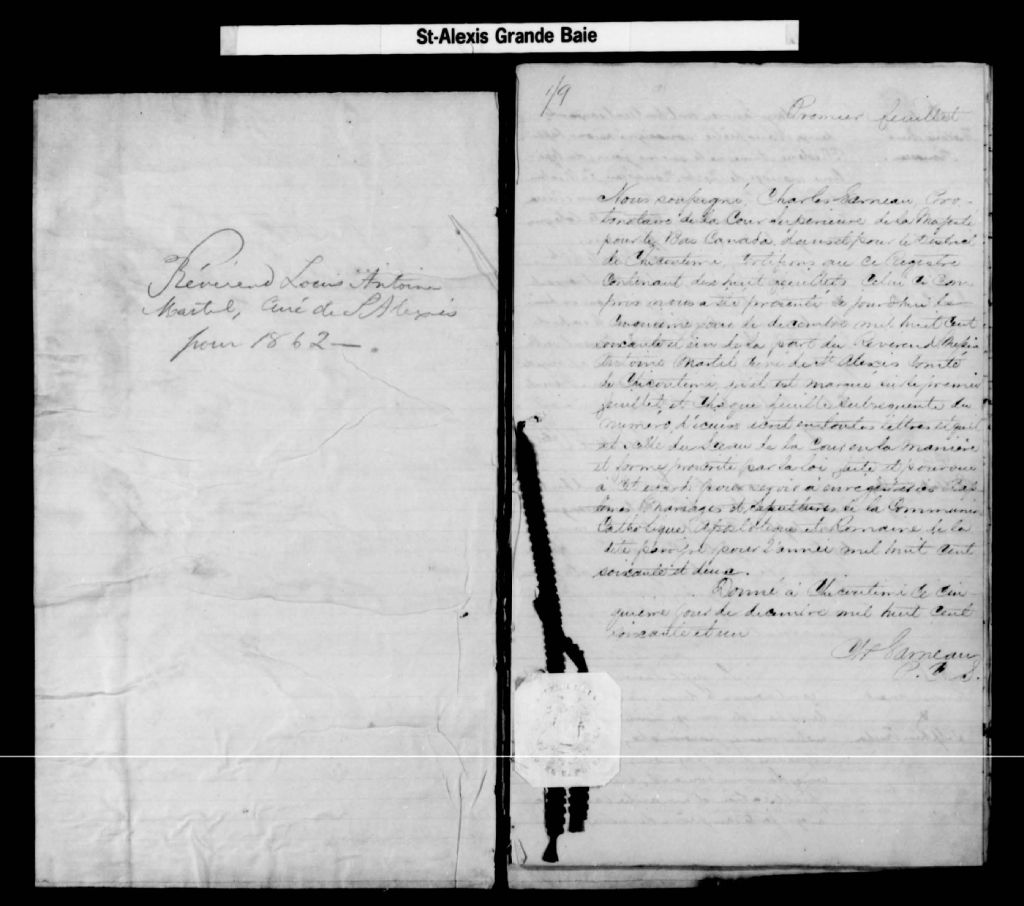 St-Alexis Grande Baie
Révérend Louis Antoine
Martel, Curé de St Alexis
pour 1862 —.
1/9
Premier feuillet
Nous soussigné, Charles Garneau, Pro-
tonotaire de la Cour Superieure de Sa Majesté
pour le Bas Canada, dans et pour le District
de Chicoutimi, certifions que ce Registre
Contenant dix huit feuillets Celui ci Com
pris nous a été présenté ce jourd'hui le
Cinquième jour de décembre mil huit cent
soixante et un de la part du Révérend Messire
Antoine Martel Curé de St Alexis Comté
de Chicoutimi, et il est marqué sur le premier
feuillet et Chaque feuille Subsequente du
numéro, écrit en toutes lettres et qu'il
est scellé du Sceau de la Cour en la manière
et forme par la loi, faite et pourvue
à cet égard pour servir à enregistrer les Bap
têmes Mariages et Sépultures de la Communion
Catholique, Apostolique et Romaine de la
dite paroisse pour l'année mil huit cent
soixante et deux.
Donné à Chicoutimi le Cin
quième jour de décembre mil huit cent
soixante et un
Ch Garneau
P. C. S.